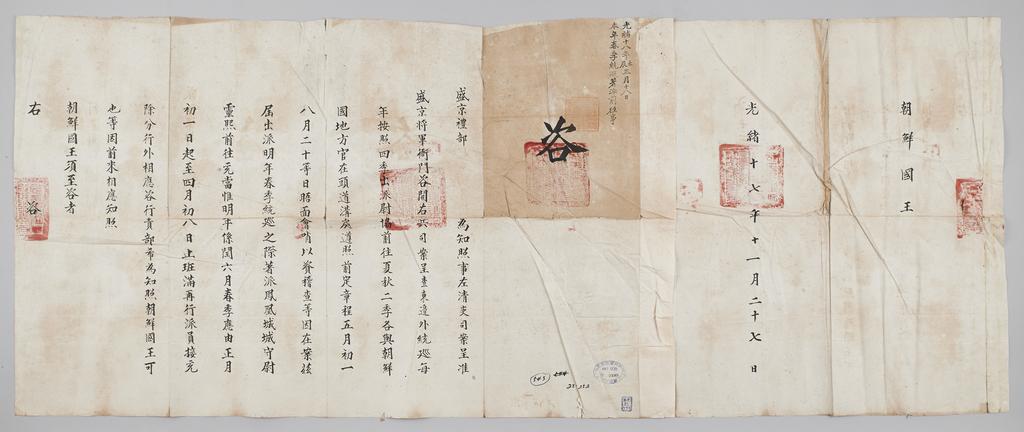 光緒十八年 三月十八日
本年春季統巡著派前往事
咨
盛京禮部 為知照事左清吏司案呈准
盛京將軍衙門咨開右兵司案呈查東邊外統巡每
年按照四季出派尉協前往夏秋二季各與朝鮮
國地方官在頭道溝處遵照前定章程五月初一
八月二十等日晤面會哨以資稽查等因在案茲
屆出派明年春季統巡之際著派鳳凰城城守尉
靈熙前往充當惟明年係閏六月春季應由正月
初一日起至四月初八日止班滿再行派員接充
除分行外相應咨行貴部希為知照朝鮮國王可
也等因前來相應知照
朝鮮國王須至咨者
右 咨
朝鮮國王
光緒十七年十一月二十七日